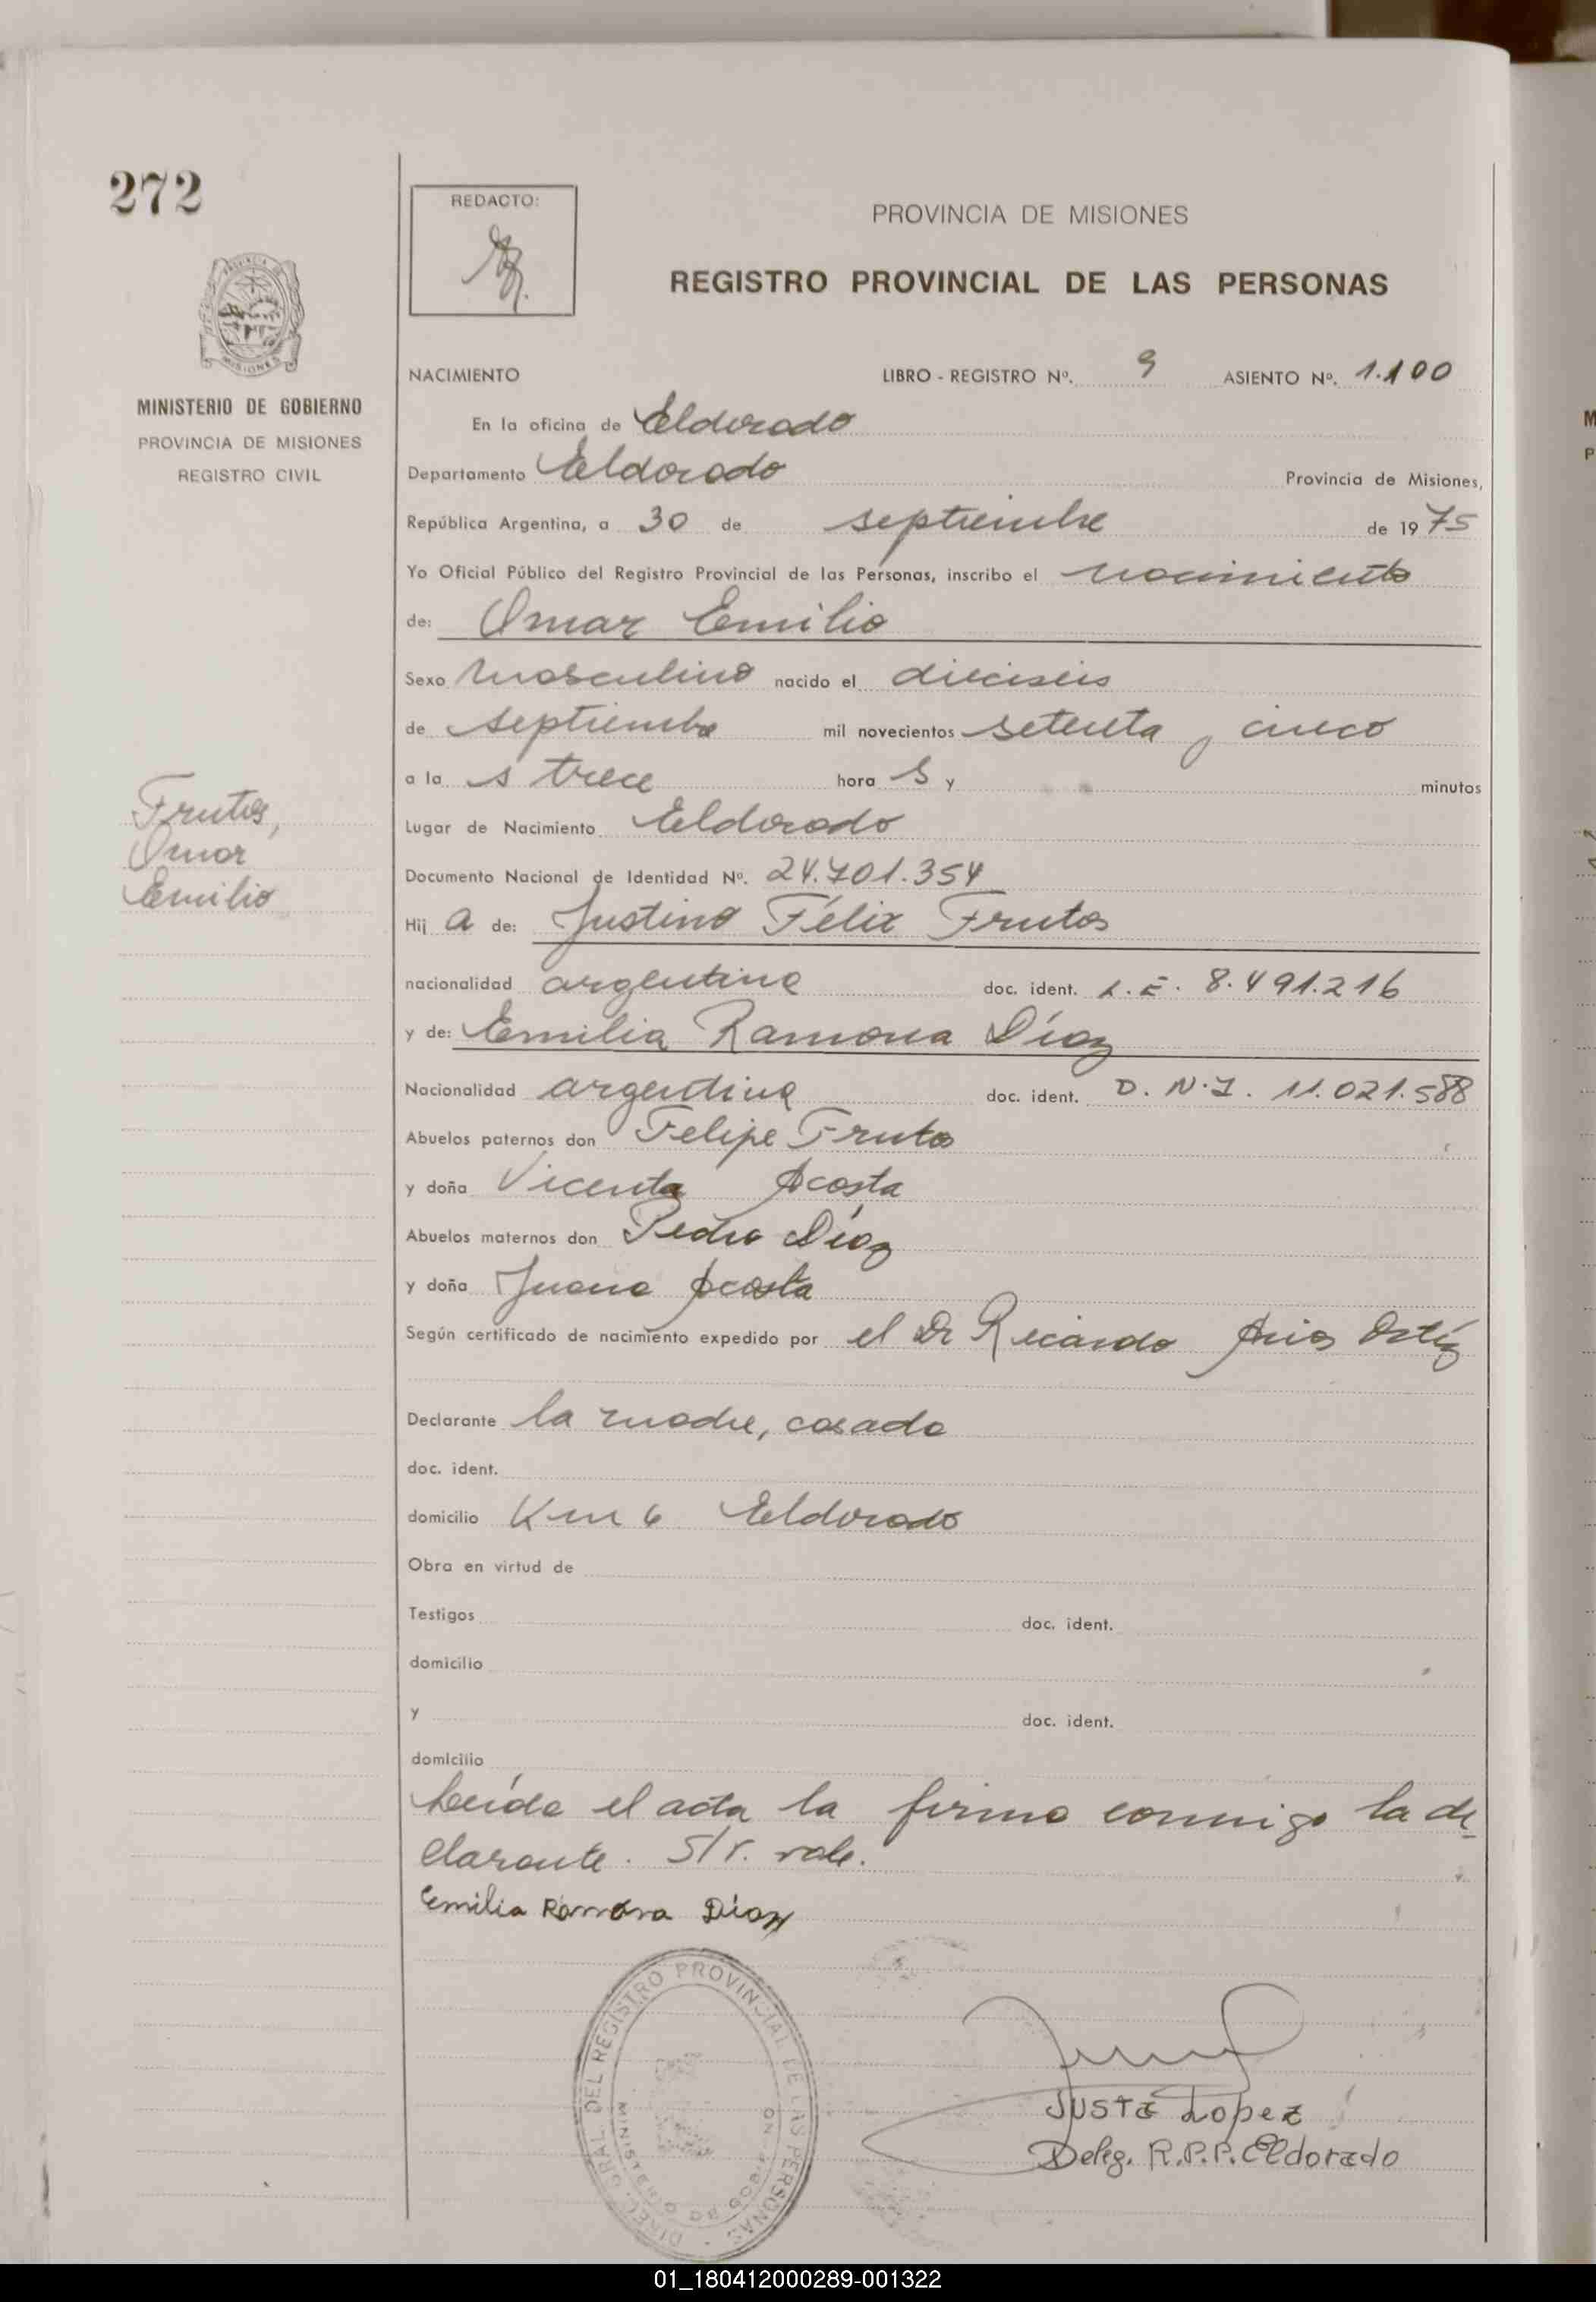 272
REDACTO:
PROVINCIA DE MISIONES
REGISTRO PROVINCIAL DE LAS PERSONAS
MINISTERIO DE GOBIERNO
PROVINCIA DE MISIONES
REGISTRO CIVIL
NACIMIENTO LIBRO - REGISTRO Nº. 9 ASIENTO Nº. 1.100
En la oficina de Eldorado
Departamento Eldorado Provincia de Misiones,
República Argentina, a 30 de septiembre de 1975
Yo Oficial Público del Registro Provincial de las Personas, inscribo el nacimiento
de: Omar Emilio
Sexo masculino nacido el dieciseis
de septiembre mil novecientos setenta y cinco
a la s trece hora s y minutos
Frutos,
Omar
Emilio
Lugar de Nacimiento Eldorado
Documento Nacional de Identidad Nº. 24.701.354
Hij a de: Justino Félix Frutos
nacionalidad argentina doc. ident. L.E. 8.491.216
y de: Emilia Ramona Díaz
Nacionalidad argentina doc. ident. D.N.I. 11.021.588
Abuelos paternos don Felipe Frutos
y doña Vicenta Acosta
Abuelos maternos don Pedro Díaz
y doña Juana Acosta
Según certificado de nacimiento expedido por el Dr Ricardo Ortíz
Declarante la madre, casada
doc. ident.
domicilio Km 6 Eldorado
Obra en virtud de
Testigos doc. ident.
domicilio
y doc. ident.
domicilio
Leída el acta la firma conmigo la de
clarante. S/r. vale.
Emilia Ramona Díaz
DIREC. GRAL. DEL REGISTRO PROVINCIAL DE LAS PERSONAS
Justa Lopez
Deleg. R.P.P. Eldorado
01_180412000289-001322